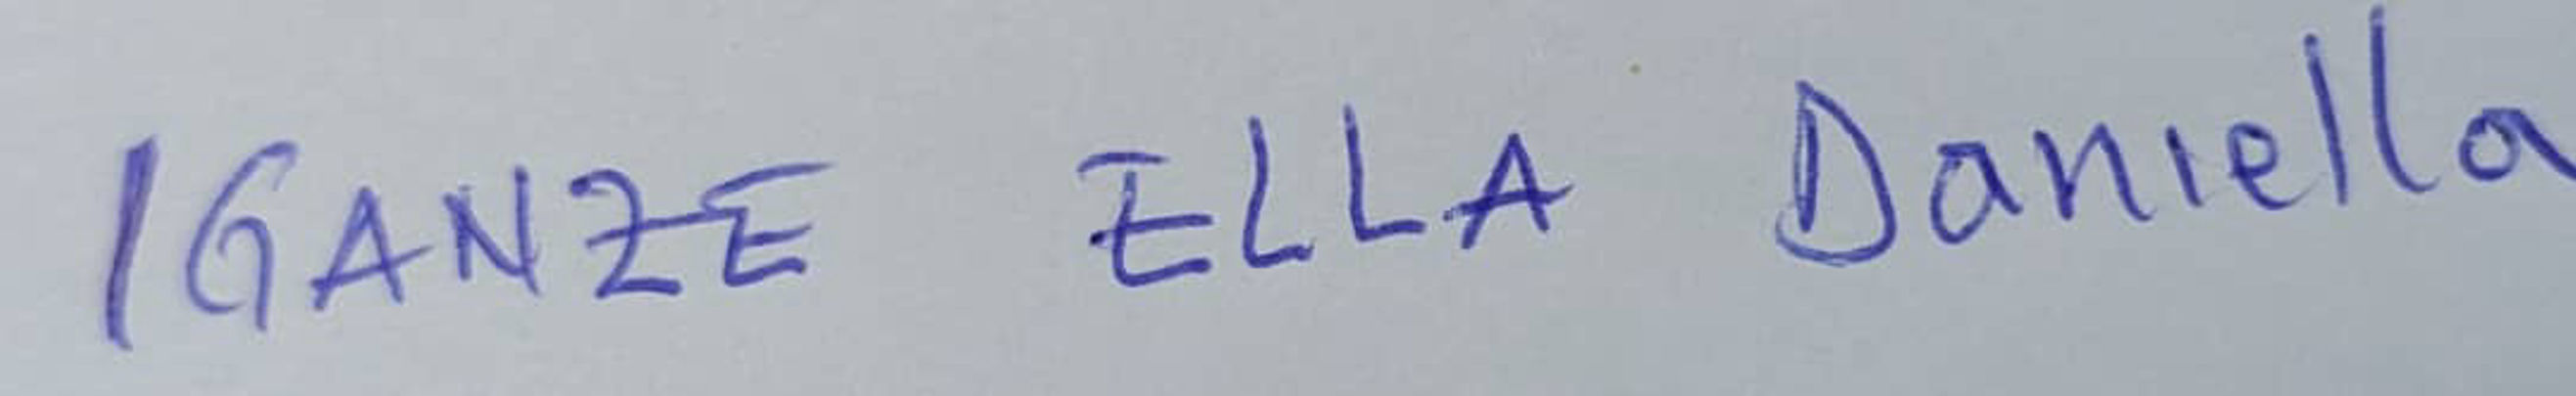 IGANZE ELLA Daniella